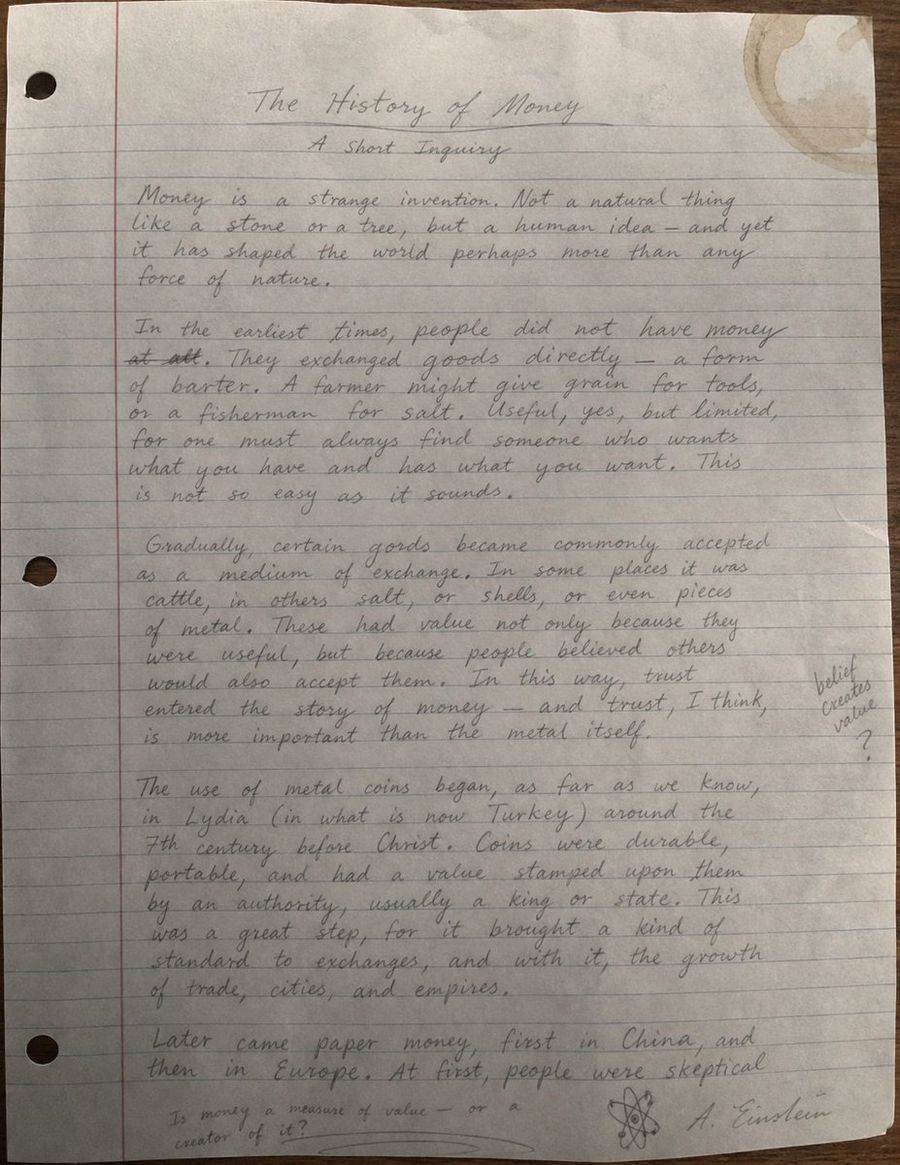 The History of Money
A Short Inquiry
Money is a strange invention. Not a natural thing
like a stone or a tree, but a human idea — and yet
it has shaped the world perhaps more than any
force of nature.
In the earliest times, people did not have money
at all. They exchanged goods directly — a form
of barter. A farmer might give grain for tools,
or a fisherman for salt. Useful, yes, but limited,
for one must always find someone who wants
what you have and has what you want. This
is not so easy as it sounds.
Gradually, certain goods became commonly accepted
as a medium of exchange. In some places it was
cattle, in others salt, or shells, or even pieces
of metal. These had value not only because they
were useful, but because people believed others
would also accept them. In this way, trust
entered the story of money — and trust, I think,
is more important than the metal itself.
belief
creates
value
?
The use of metal coins began, as far as we know,
in Lydia (in what is now Turkey) around the
7th century before Christ. Coins were durable,
portable, and had a value stamped upon them
by an authority, usually a king or state. This
was a great step, for it brought a kind of
standard to exchanges, and with it, the growth
of trade, cities, and empires.
Later came paper money, first in China, and
then in Europe. At first, people were skeptical
Is money a measure of value — or a
creator of it?
A. Einstein